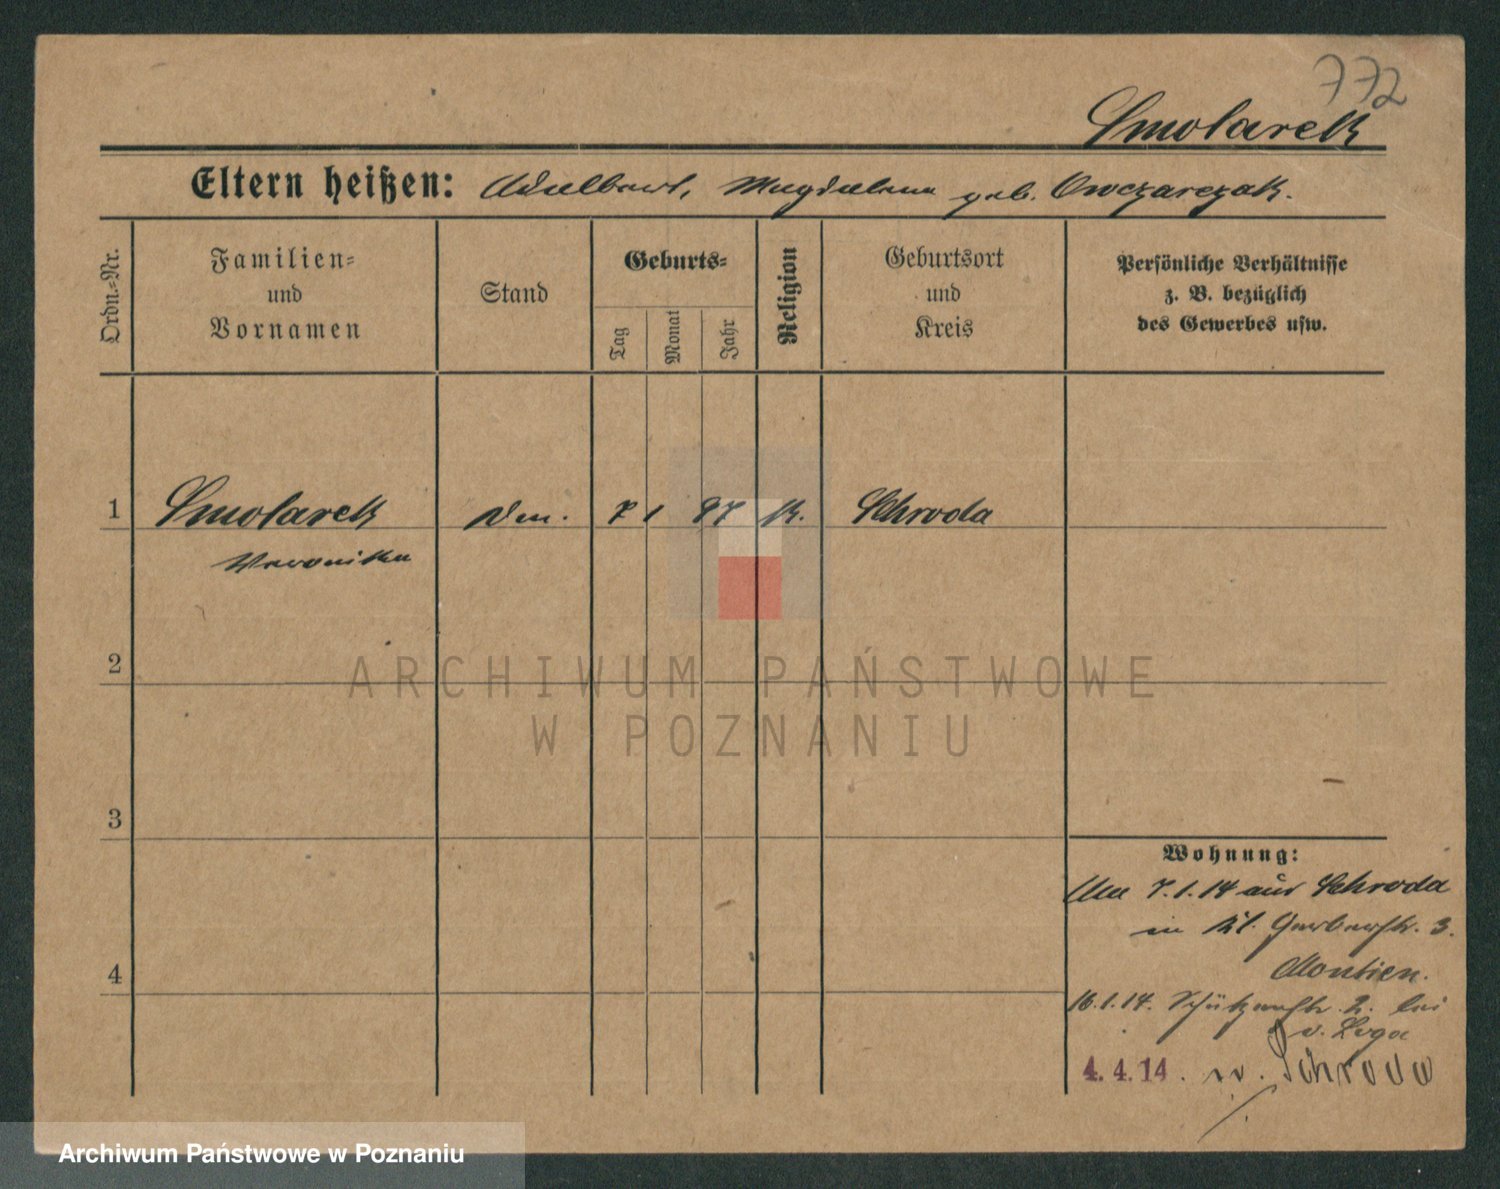 772
Smolarek
Eltern heißen: Adalbert, Magdalena geb. Owczarczak.
Ordn.-Nr.
Familien-
und
Vornamen
Stand
Geburts-
Tag
Monat
Jahr
Religion
Geburtsort
und
Kreis
Persönliche Verhältnisse
z. B. bezüglich
des Gewerbes usw.
1 Smolarek 7 1 97 K. Schroda
Veronika
2
ARCHIWUM PAŃSTWOWE
W POZNANIU
3
Wohnung:
7.1.14 aus Schroda
in Kl. Gerberstr. 3.
4
16.1.14. Schützenstr. 2. bei
v. Loga
4.4.14. n. Schroda
Archiwum Państwowe w Poznaniu